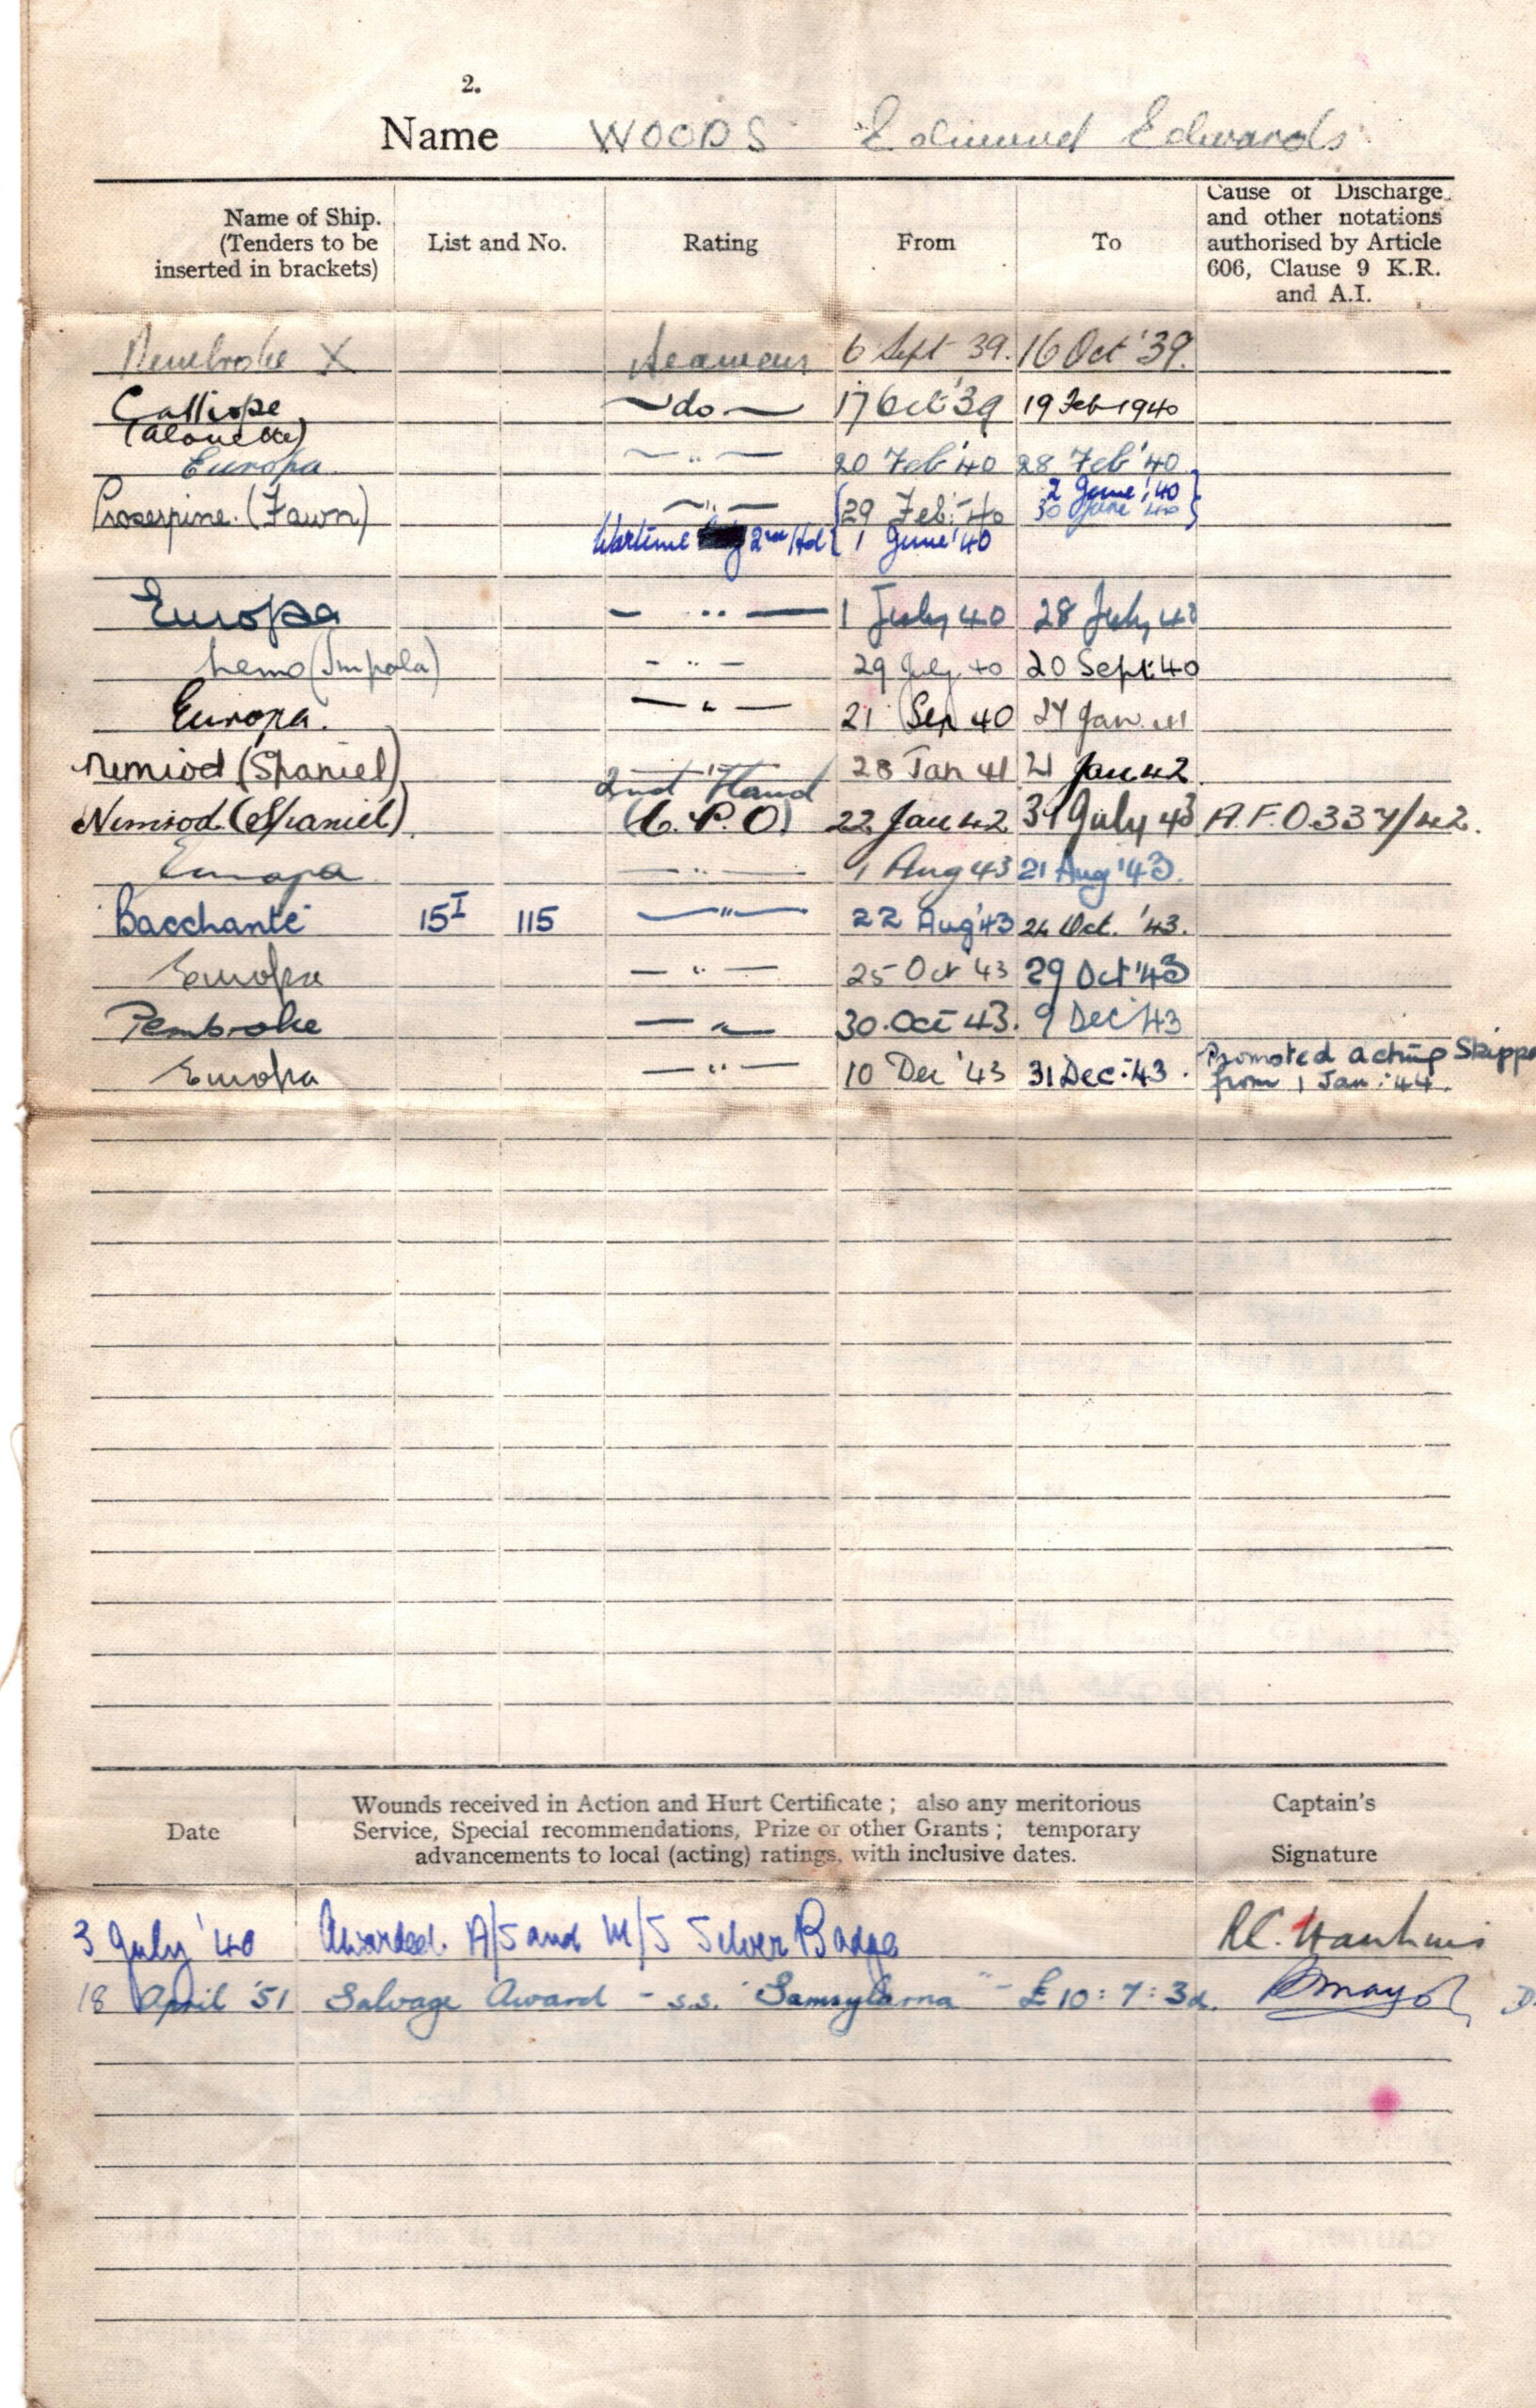 2.
Name WOODS Edmund Edwards
Name of Ship. (Tenders to be inserted in brackets) List and No. Rating From To Cause of Discharge and other notations authorised by Article 606, Clause 9 K.R. and A.I.
Pembroke X Seaman 6 Sept 39. 16 Oct '39.
Calliope (Alouette) ~do~ 17 Oct '39 19 Feb 1940
Europa — " — 20 Feb '40 28 Feb '40
Proserpine. (Fawn) — " — 29 Feb: 40 2 June '40
30 June '40
Wartime 2nd Hd 1 June '40
Europa — " — 1 July 40 28 July 40
Nemo (Impala) - " - 29 July 40 20 Sept: 40
Europa. — " — 21 Sep 40 27 Jan. 41
Nemrod (Spaniel) — " — 28 Jan 41 21 Jan 42
Nimrod. (Spaniel) 2nd Hand (C.P.O) 22 Jan 42 31 July 43 A.F.O. 337/42.
Europa — " — 1 Aug 43 21 Aug '43.
Bacchante 15I 115 — " — 22 Aug '43 24 Oct. '43.
Europa — " — 25 Oct '43 29 Oct '43
Pembroke — " — 30. Oct 43. 9 Dec '43
Europa — " — 10 Dec '43 31 Dec: 43. Promoted acting Skipper
from 1 Jan: 44.
Date Wounds received in Action and Hurt Certificate ; also any meritorious Service, Special recommendations, Prize or other Grants ; temporary advancements to local (acting) ratings, with inclusive dates. Captain's Signature
3 July '40 Awarded. A/S and M/S Silver Badge
18 April '51 Salvage Award - s.s. "Samsylarna" - £10 : 7 : 3d.